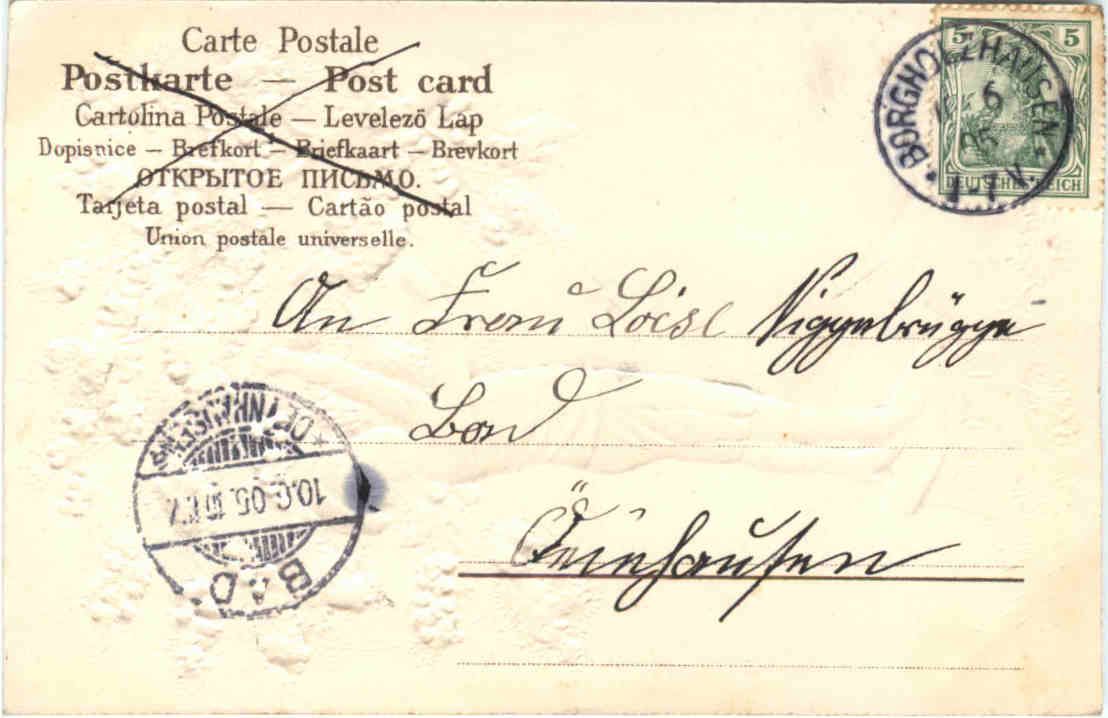 Carte Postale
Postkarte — Post card
Cartolina Postale — Levelező Lap
Dopisnice — Brefkort — Briefkaart — Brevkort
ОТКРЫТОЕ ПИСЬМО.
Tarjeta postal — Cartão postal
Union postale universelle.
5 5
DEUTSCHES REICH
BORGHOLZHAUSEN
6
05
An Frau Loise Niggebrügge
Bad
Öeinhausen
BAD
10.6.05.
OEYNHAUSEN